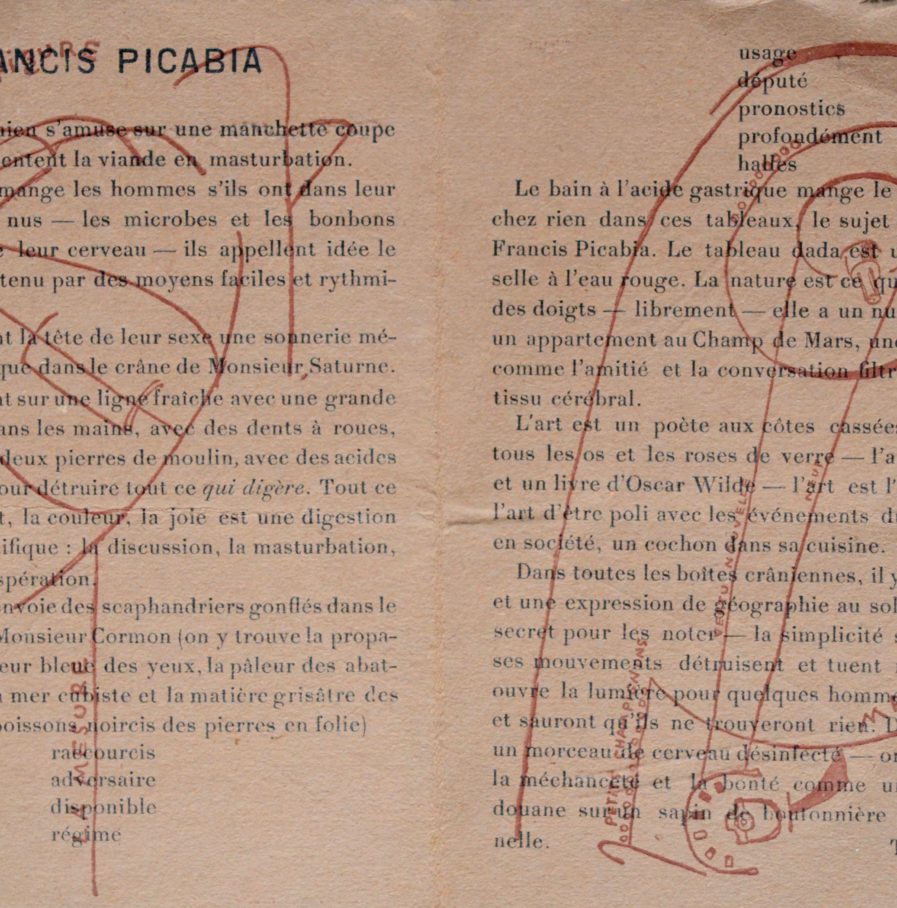 ANCIS PICABIA
hien s'amuse sur une manchette coupe
entent la viande en masturbation.
mange les hommes s'ils ont dans leur
nus — les microbes et les bonbons
leur cerveau — ils appellent idée le
tenu par des moyens faciles et rythmi-
nt la tête de leur sexe une sonnerie mé-
que dans le crâne de Monsieur Saturne.
nt sur une ligne fraîche avec une grande
ans les mains, avec des dents à roues,
deux pierres de moulin, avec des acides
our détruire tout ce qui digère. Tout ce
t, la couleur, la joie est une digestion
ifique : la discussion, la masturbation,
spération.
envoie des scaphandriers gonflés dans le
Monsieur Cormon (on y trouve la propa-
eur bleue des yeux, la pâleur des abat-
a mer cubiste et la matière grisâtre des
poissons noircis des pierres en folie)
raccourcis
adversaire
disponible
régime
LA MESURE
usage
député
pronostics
profondément
halles
Le bain à l'acide gastrique mange le
chez rien dans ces tableaux, le sujet
Francis Picabia. Le tableau dada est u
selle à l'eau rouge. La nature est ce qu
des doigts — librement — elle a un nu
un appartement au Champ de Mars, une
comme l'amitié et la conversation filtr
tissu cérébral.
L'art est un poète aux côtes cassées
tous les os et les roses de verre — l'a
et un livre d'Oscar Wilde — l'art est l'
l'art d'être poli avec les événements d
en société, un cochon dans sa cuisine.
Dans toutes les boîtes crâniennes, il y
et une expression de géographie au sol
secret pour les noter — la simplicité s
ses mouvements détruisent et tuent
ouvre la lumière pour quelques homme
et sauront qu'ils ne trouveront rien. D
un morceau de cerveau désinfecté — on
la méchanceté et la bonté comme un
douane sur un sapin de boutonnière
nelle.
T